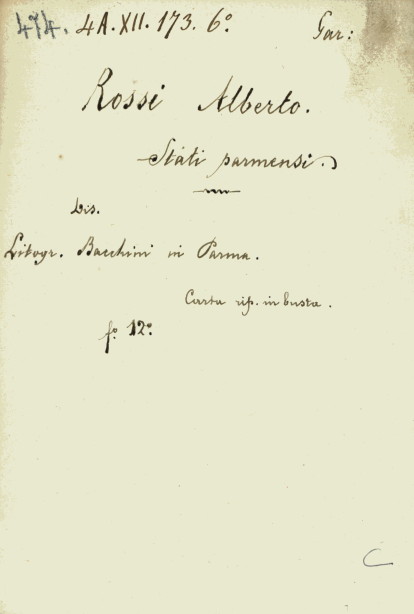 474. 4A. XII. 173. 6º. Gar:
Rossi Alberto.
Stati parmensi.
Dis.
Litogr. Bacchini in Parma.
Carta rip. in busta.
fº 12º
C